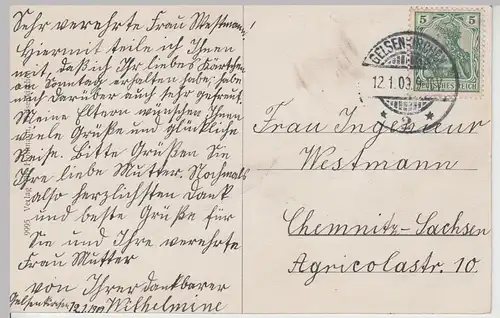 Sehr verehrte Frau Westmann!
Hiermit teile ich Ihnen
mit, daß ich Ihr liebes Kärtchen
am Sonntag erhalten habe, habe
mich darüber auch sehr gefreut.
Meine Eltern wünschen Ihnen
viele Grüße und glückliche
Reise. Bitte Grüßen Sie
Ihre liebe Mutter. Nochmals
also herzlichsten Dank
und beste Grüße für
Sie und Ihre verehrte
Frau Mutter
von Ihrer dankbaren
Gelsenkirchen 12.1.09 Wilhelmine
9995 Verlag
5 5
DEUTSCHES REICH
GELSENKIRCHEN
12.1.09
Frau Ingenieur
Westmann
Chemnitz-Sachsen
Agricolastr. 10.